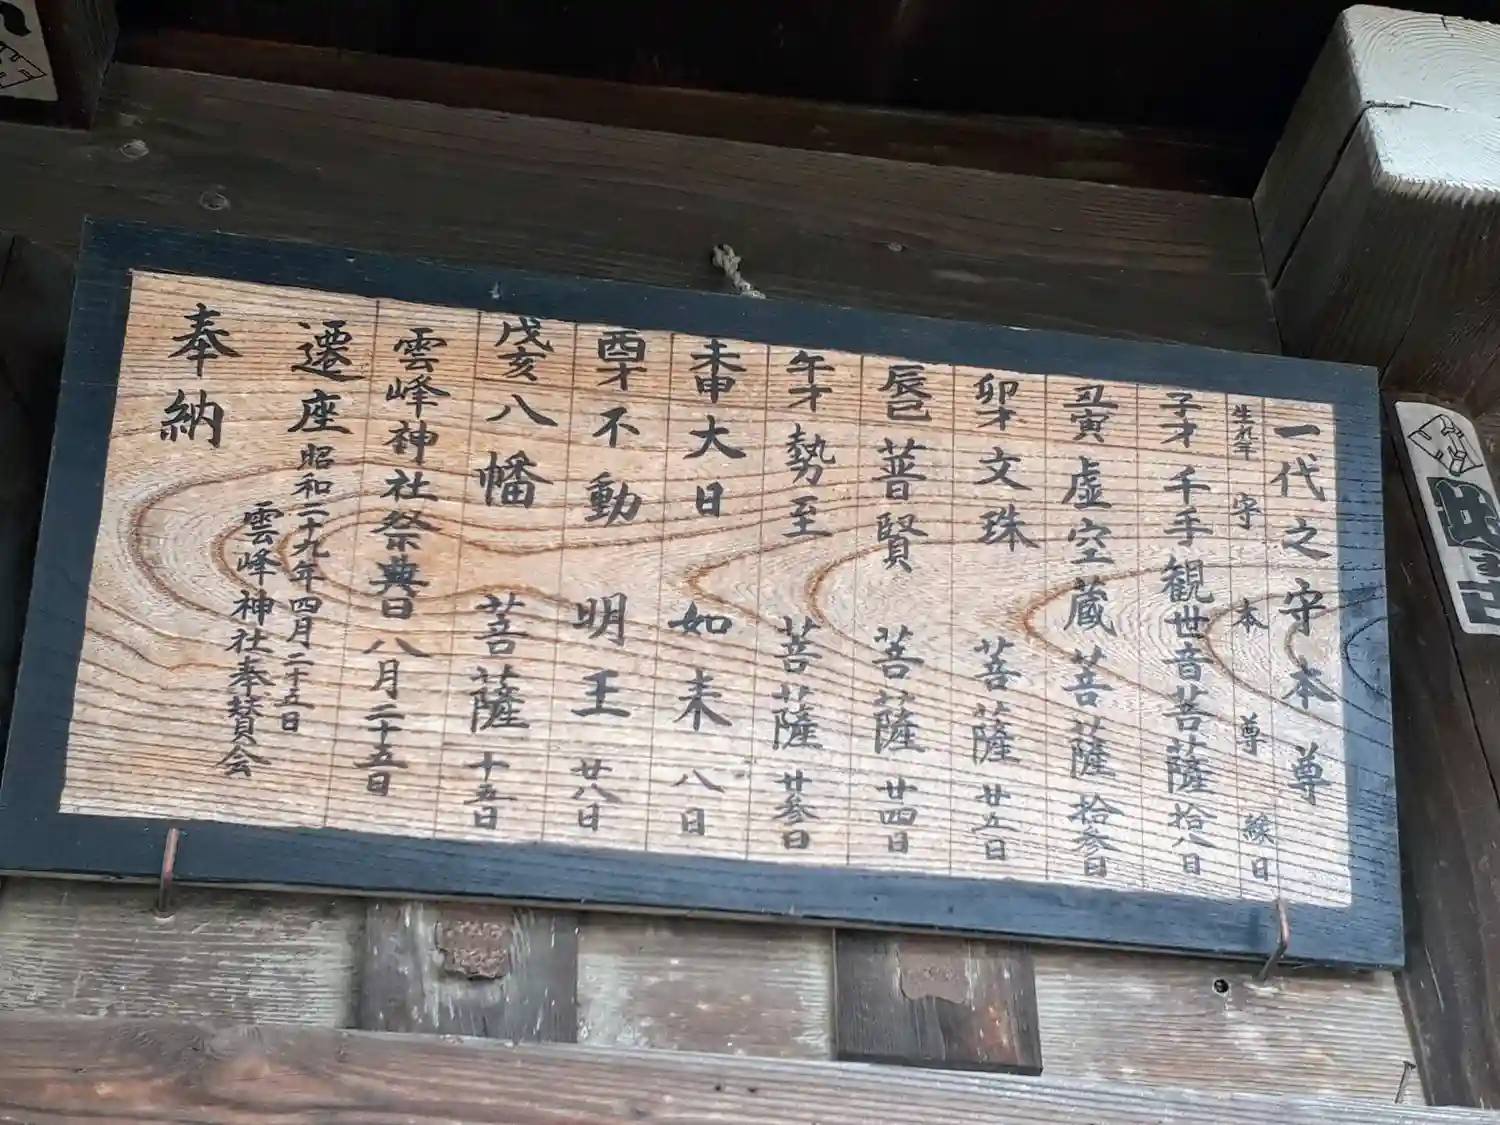 一代之守本尊
生れ年 守本尊 縁日
子才 千手観世音菩薩 拾八日
丑寅 虚空蔵菩薩 拾参日
卯才 文珠菩薩 廿五日
辰巳 普賢菩薩 廿四日
午才 勢至菩薩 廿参日
未申 大日如来 八日
酉才 不動明王 廿八日
戌亥 八幡菩薩 十五日
雲峰神社祭典日 八月二十五日
遷座 昭和二十九年四月二十五日
雲峰神社奉賛会
奉納